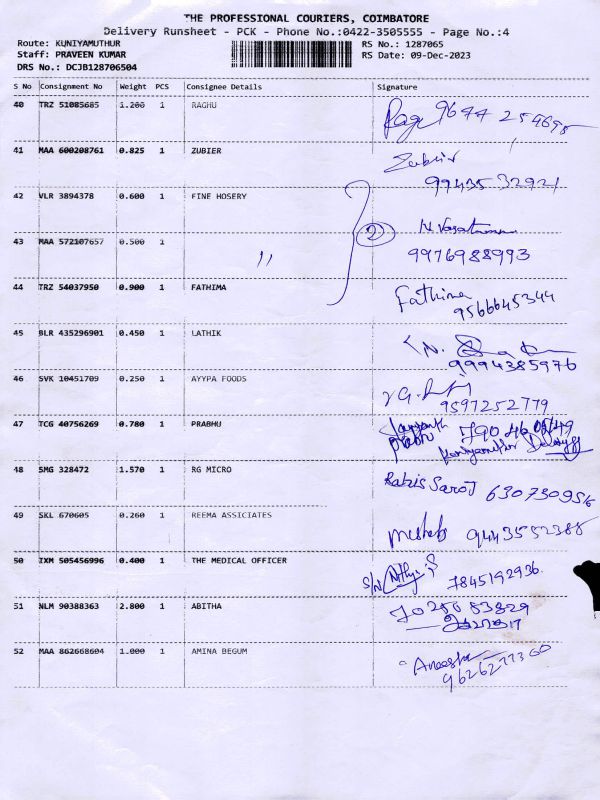 THE PROFESSIONAL COURIERS, COIMBATORE
Delivery Runsheet - PCK - Phone No.:0422-3505555 - Page No.:4
Route: KUNIYAMUTHUR RS No.: 1287065
Staff: PRAVEEN KUMAR RS Date: 09-Dec-2023
DRS No.: DCJB128706504
S No Consignment No Weight PCS Consignee Details Signature
40 TRZ 51085685 1.200 1 RAGHU 9644 254695
41 MAA 600208761 0.825 1 ZUBIER Zubier
9943532921
42 VLR 3894378 0.600 1 FINE HOSERY
2
43 MAA 572107657 0.500 1 " 9976988993
44 TRZ 54037950 0.900 1 FATHIMA Fathima
9566645344
45 BLR 435296901 0.450 1 LATHIK N.
9994385976
46 SVK 10451709 0.250 1 AYYPA FOODS
9597252779
47 TCG 40756269 0.780 1 PRABHU Jayanth
prabu
48 SMG 328472 1.570 1 RG MICRO 630730956
49 SKL 670605 0.260 1 REEMA ASSICIATES 9443552388
50 IXM 505456996 0.400 1 THE MEDICAL OFFICER S/N 7845192936.
51 NLM 90388363 2.800 1 ABITHA
52 MAA 862668604 1.000 1 AMINA BEGUM
9626277360